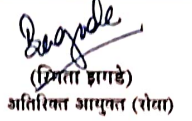 (स्मिता झगडे)
अतिरिक्त आयुक्त (रोया)